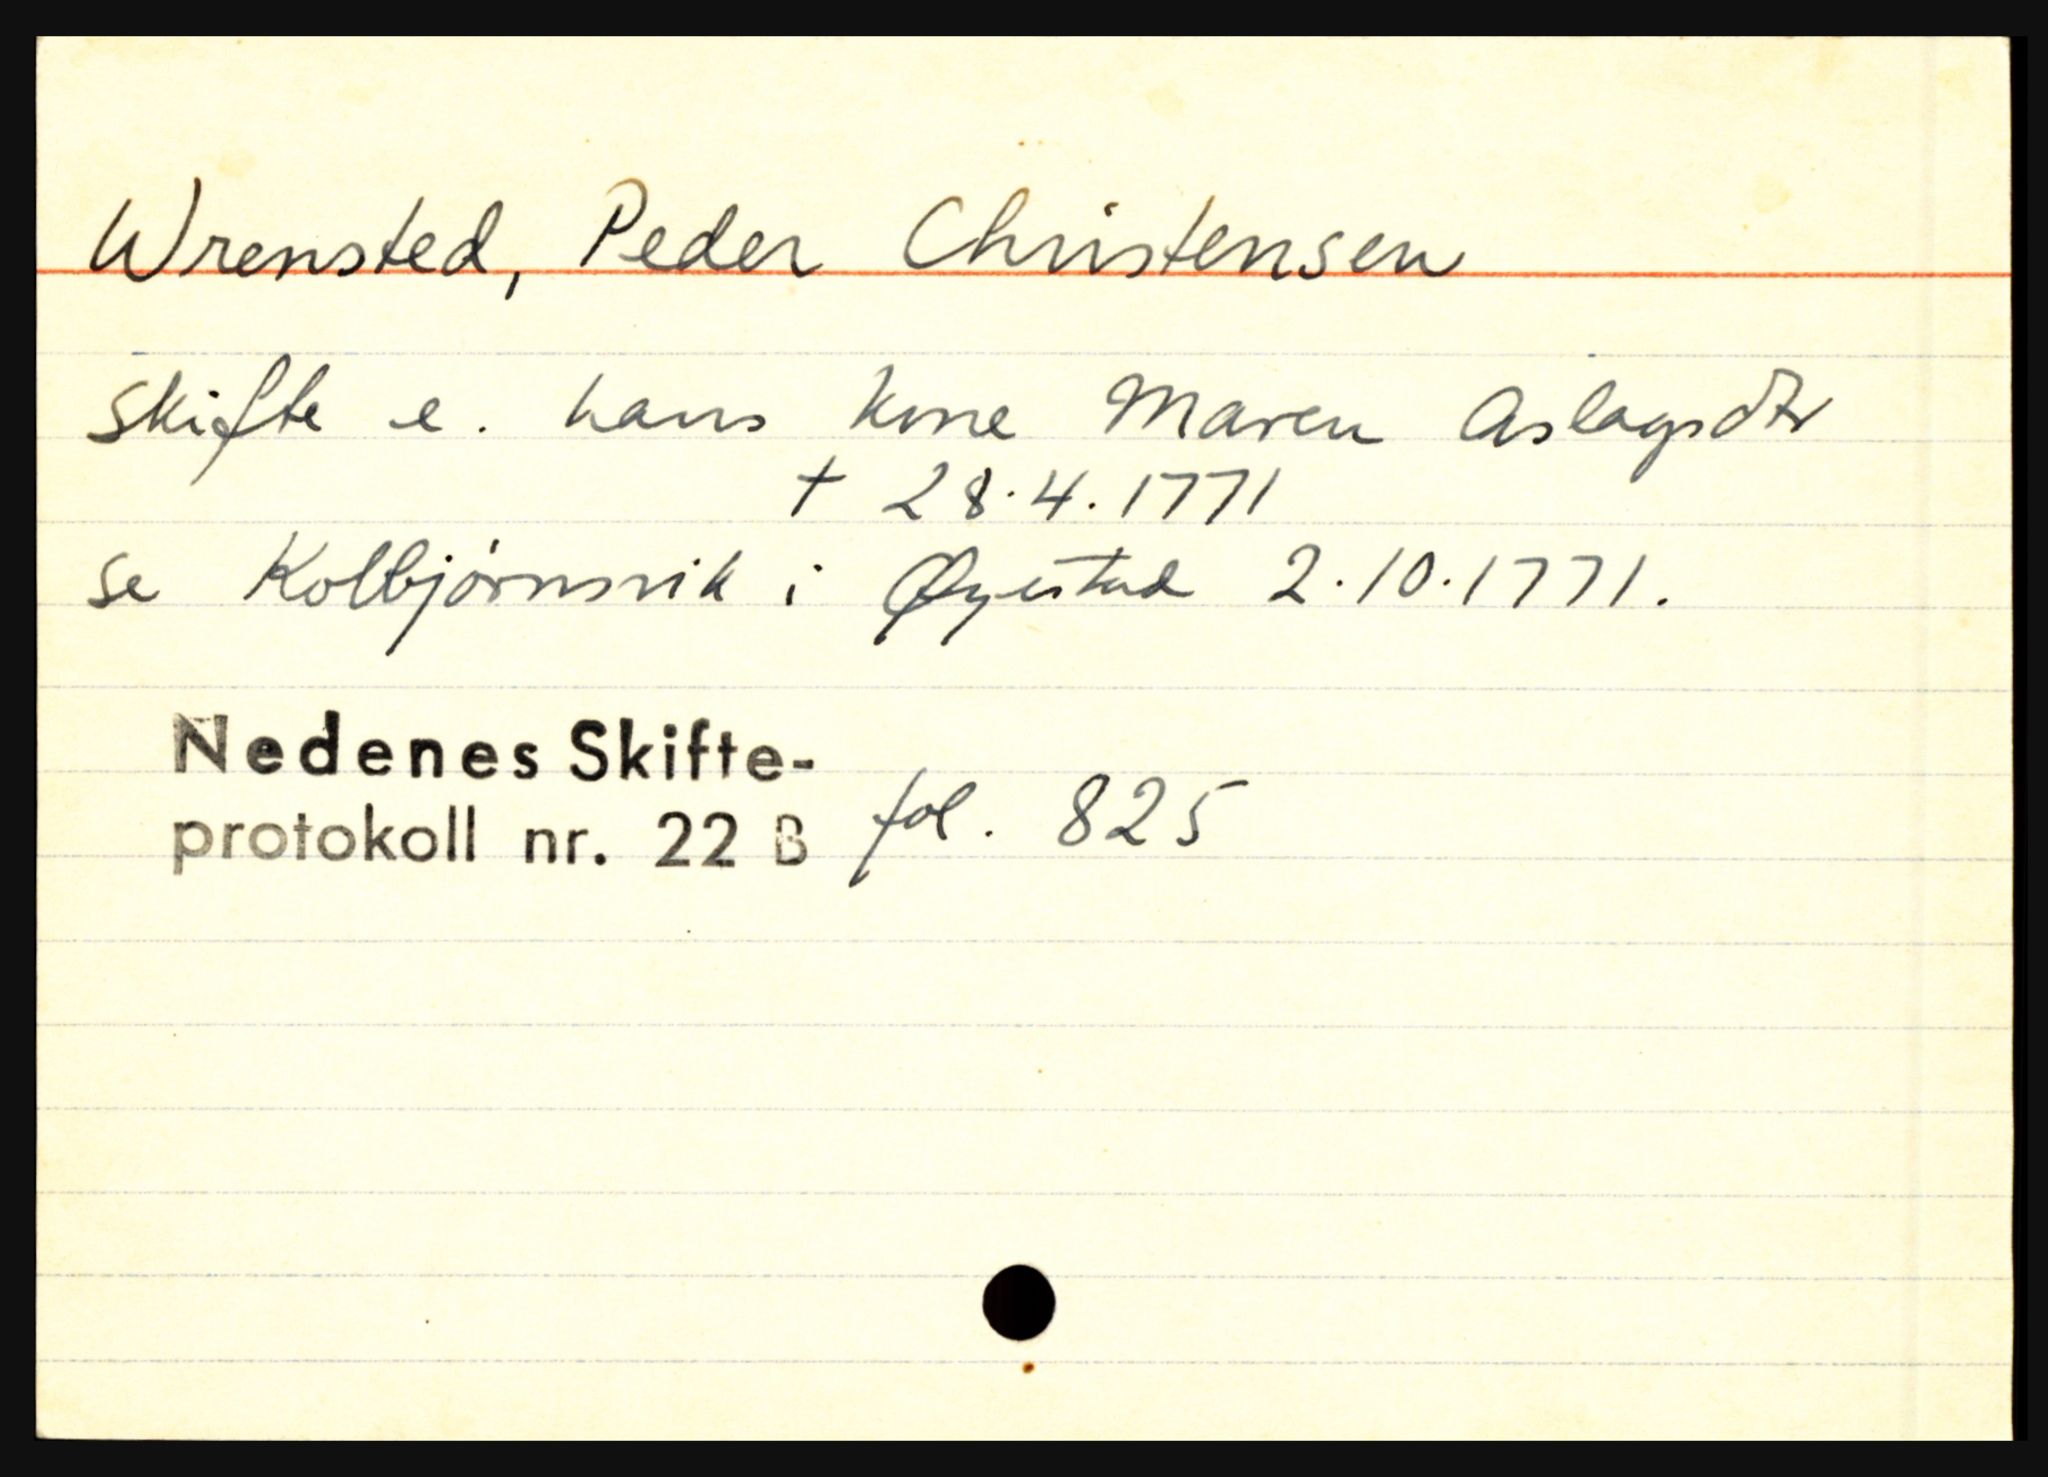 Wrensted, Peder Christensen
Skifte e. hans kone Maren Aslagsdtr
† 28.4.1771
se Kolbjørnsvik i Øyestad 2.10.1771.
Nedenes Skifte-
protokoll nr. 22 B fol. 825